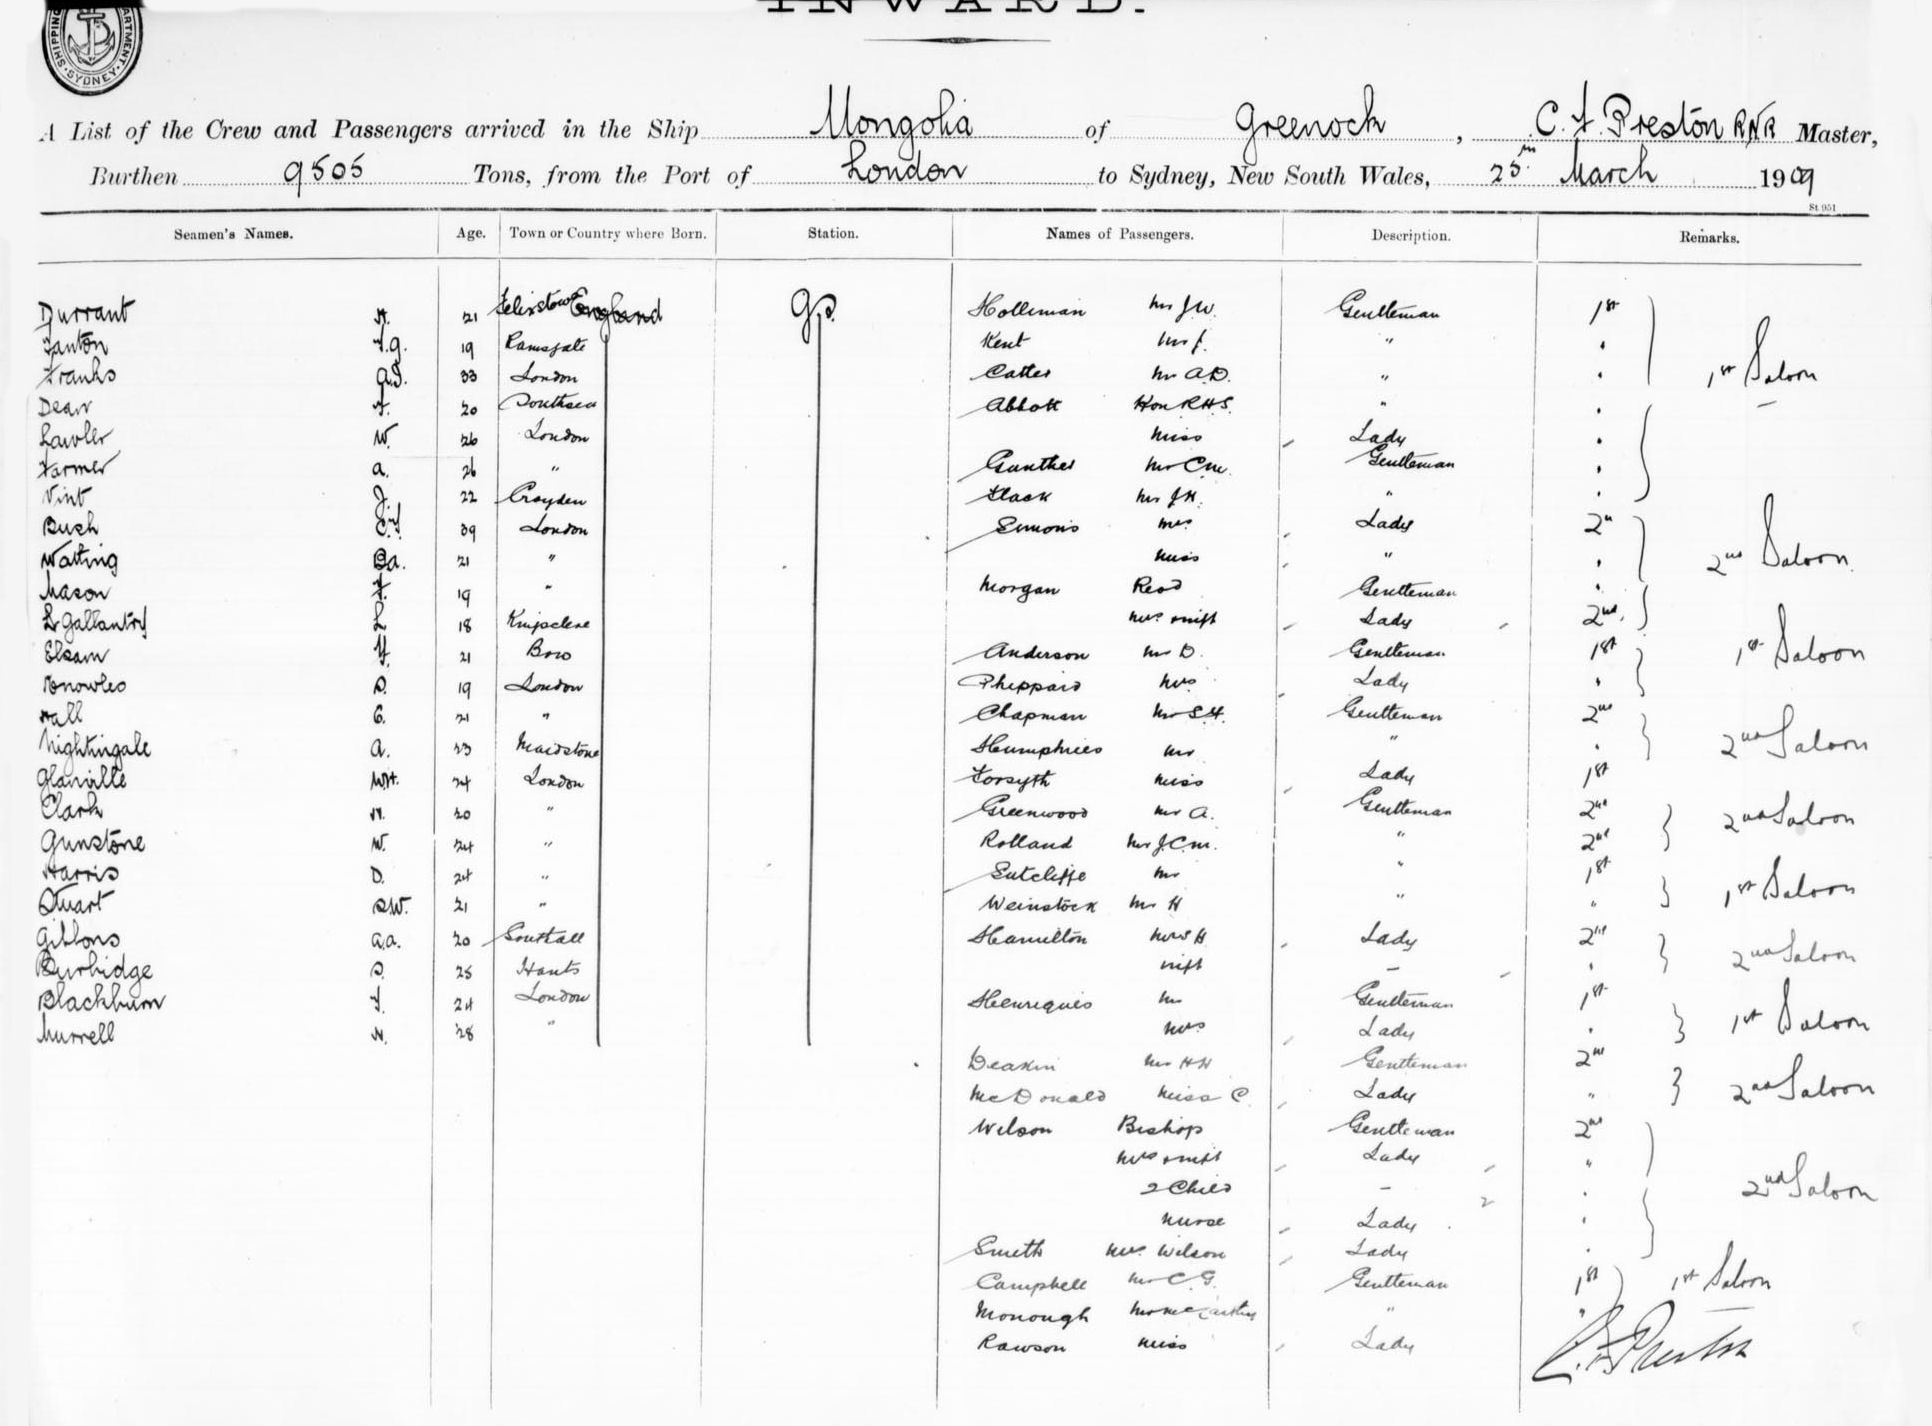 INWARD.
SHIPPING DEPARTMENT. SYDNEY.
A List of the Crew and Passengers arrived in the Ship Mongolia of Greenock, C. F. Preston RNR Master,
Burthen 9505 Tons, from the Port of London to Sydney, New South Wales, 25th March 1909
St 951
Seamen's Names. Age. Town or Country where Born. Station. Names of Passengers. Description. Remarks.
Durrant H. 21 Felixstow England G.S. Holliman Mr J.W. Gentleman 1st
Fanton F.G. 19 Ramsgate Kent Mr J. "
Franks 33 London Mr A.D. " 1st Saloon
Dean F. 20 Southsea Abbott Hon R.H.S. "
Lawler W. 26 London Miss Lady
Farmer A. 26 " Gunther Mr C.M. Gentleman
Vint J. 22 Croyden Flack Mr J.H. "
Bush 39 London Simons Mrs Lady 2nd
Watling 21 " Miss " 2nd Saloon
Mason F. 19 " Morgan Gentleman
L 18 Mrs & inft Lady 2nd
Elsam 21 Bow Anderson Mr D. Gentleman 1st 1st Saloon
Knowles S. 19 London Sheppard Mrs Lady
Hall G. 21 " Chapman Mr S.H. Gentleman 2nd
Nightingale A. 23 Maidstone Humphries Mr " 2nd Saloon
Glanville W.H. 24 London Forsyth Miss Lady 1st
Clark H. 20 " Greenwood Mr A. Gentleman 2nd 2nd Saloon
Gunstone W. 24 " Rolland Mr J.C.M. " 2nd
Harris D. 24 " Sutcliffe Mr " 1st
Stuart S.W. 21 " Weinstock Mr H " " 1st Saloon
Gibbons A.A. 20 Southall Hamilton Mrs H Lady 2nd
Burbidge S. 25 Hants inft - 2nd Saloon
Blackburn F. 24 London Henriques Mr Gentleman 1st
Murrell H. 28 " Mrs Lady 1st Saloon
Deakin Mr H H Gentleman 2nd
McDonald Miss C. Lady " 2nd Saloon
Wilson Bishop Gentleman 2nd
Mrs & inft Lady "
2 Child - 2 2nd Saloon
Nurse Lady
Smith Mrs Wilson Lady
Campbell Mr C.G. Gentleman 1st 1st Saloon
Monough Mr McCarthy " "
Rawson Miss Lady
C. F. Preston